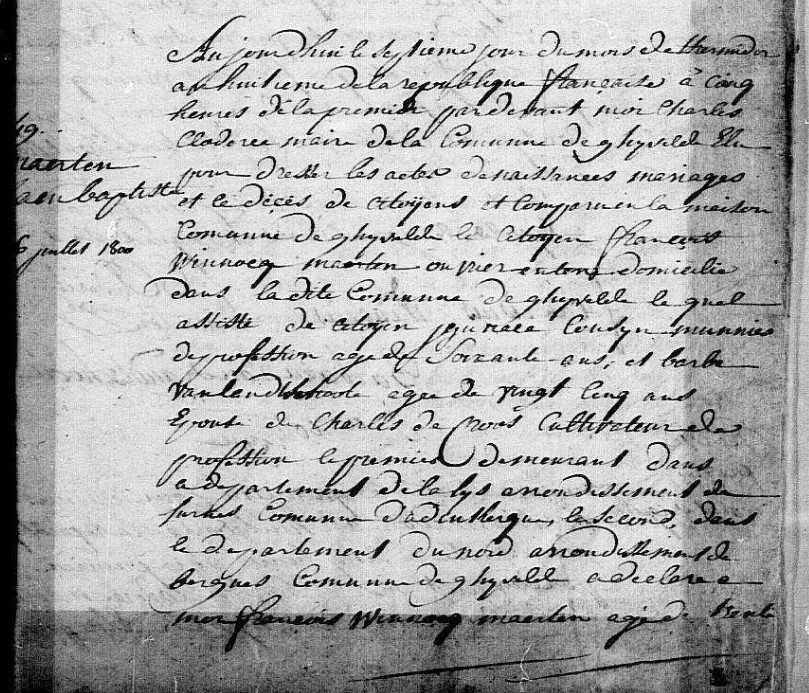 Aujourdhui le septieme jour du mois de thermidor
an huitieme de la republique française à cinq
heures de la premier par devant moi Charles
maire de la Comunne de ghyvelde Elu
pour dresser les actes de naissances mariages
et le déçès de citoyens et Comparu en la maison
Comunne de ghyvelde le Citoyen françois
Winnocq maerten ouvrier domicilie
dans la dite Comunne de ghyvelde le quel
assisté de citoyen Cousyn munnier
de profession age de Soixante ans, et barbe
agee de vingt Cinq ans
Epouse de Charles de Croos Cultivateur de
profession le premier demeurant dans
departement de la lys arrondissement de
furnes Comunne d'adenkerque, le second, dans
le departement du nord arrondissement de
bergues Comunne de ghyvelde a declare a
moi françois Winnocq maerten age de trente
19.
maerten
jaen baptiste
6 juillet 1800